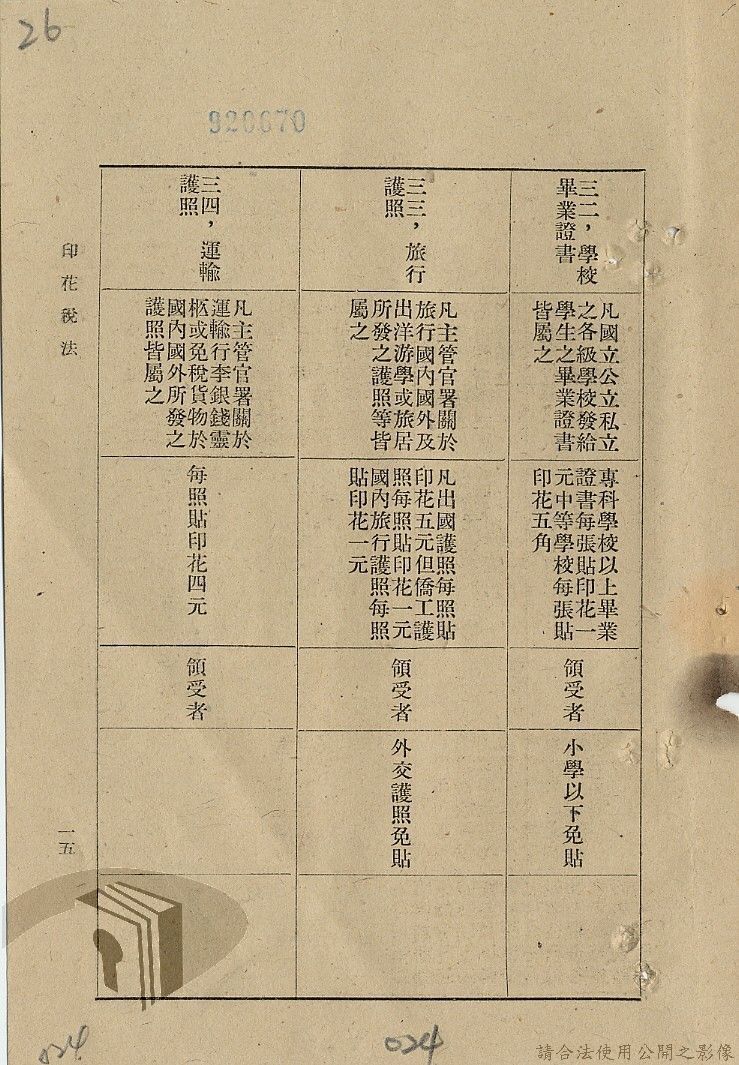 26
920670
三二，學校
畢業證書
凡國立公立私立
之各級學校發給
學生之畢業證書
皆屬之
專科學校以上畢業
證書每張貼印花一
元中等學校每張貼
印花五角
領受者
小學以下免貼
三三，旅行
護照
凡主管官署關於
旅行國內國外及
出洋游學或旅居
所發之護照等皆
屬之
凡出國護照每照貼
印花五元但僑工護
照每照貼印花一元
國內旅行護照每照
貼印花一元
領受者
外交護照免貼
三四，運輸
護照
凡主管官署關於
運輸行李銀錢靈
柩或免稅貨物於
國內國外所發之
護照皆屬之
每照貼印花四元
領受者
印花稅法
一五
024
024
請合法使用公開之影像